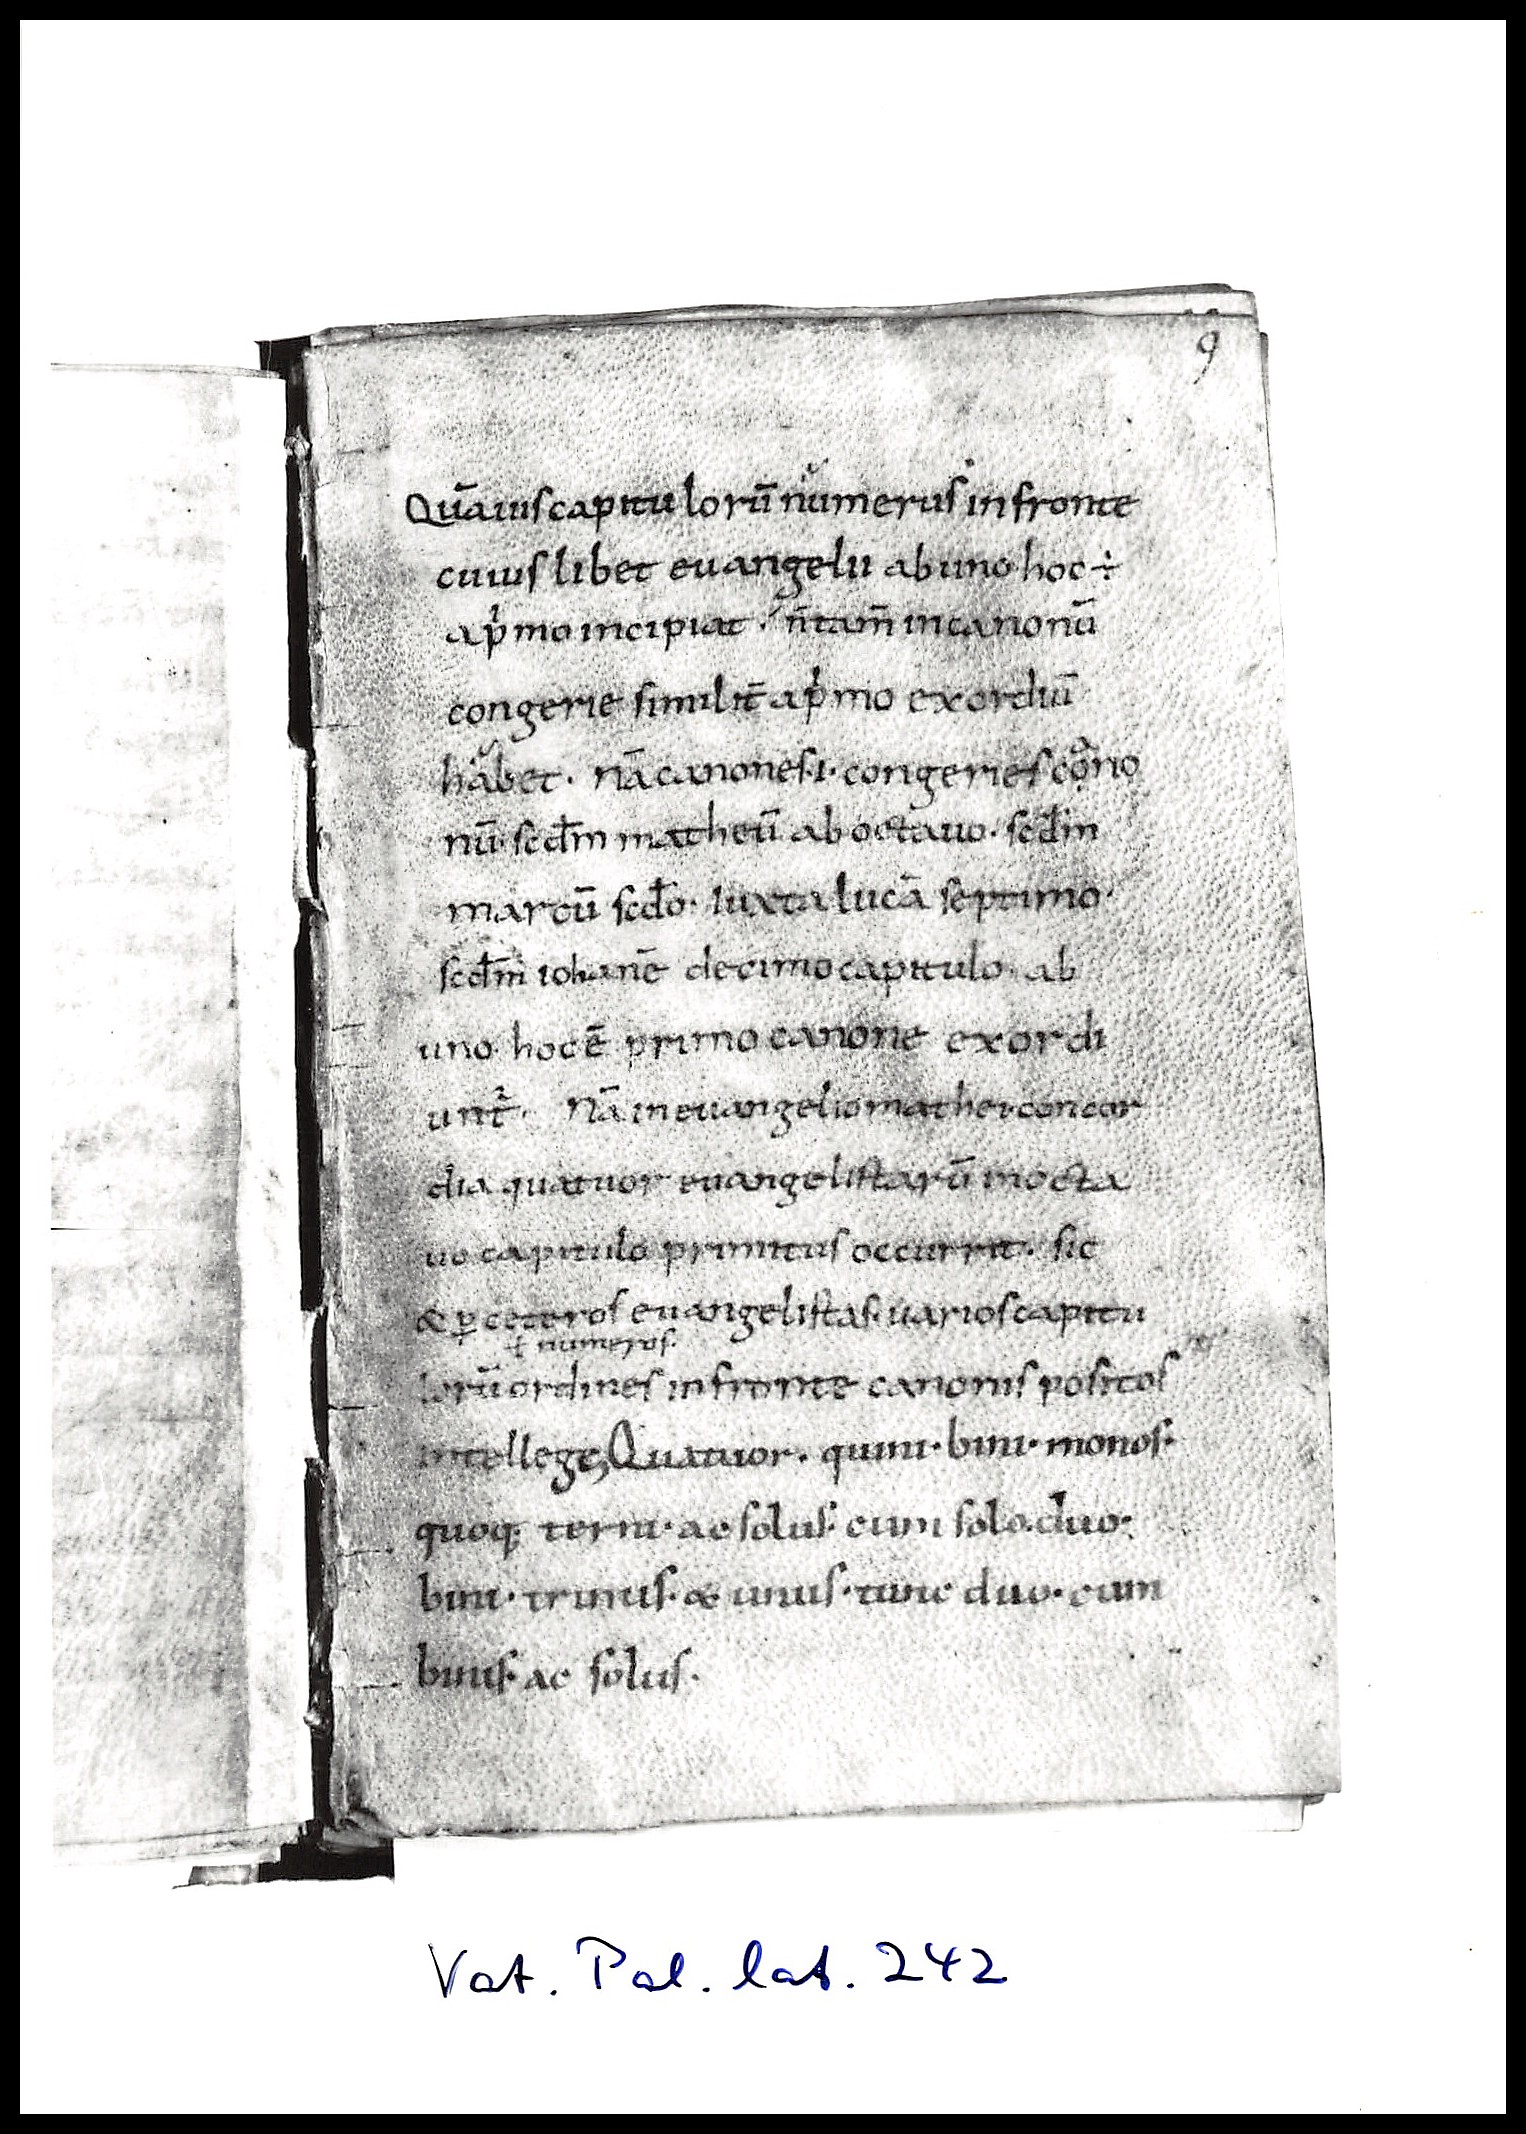 9
Quāuis capitulorū numerus in fronte
cuius libet euangelii ab uno hoc ÷
a pͥmo incipiat · n̄ tam̄ in canonū
congerie similit̄ a pͥmo exordiū
habet · nā canones · i · congeries cͣono
nū · scd̄m matheū ab octauo · scd̄m
marcū scd̄o · iuxta lucā septimo ·
scd̄m iohanē decimo capitulo · ab
uno · hoc ē primo canone exordi
unt̉ · Nā in euangelio mathei concor
dia quatuor euangelistarū in octa
uo capitulo primitus occurrit · sic
& ꝑ ceteros euangelistas · uarios capitu
ł numeros ·
lorū ordines in fronte canonis positos
intellege; Quatuor · quini · bini · monos ·
quoq; terni · ac solus · cum solo · duo ·
bini · trinus · & unus · tunc duo · cum
binis · ac solus ·
Vat. Pal. lat. 242